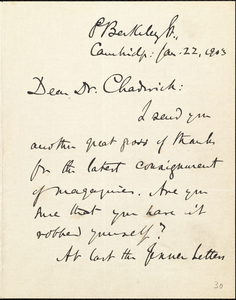 Berkeley St.,
Cambridge: Jan-22, 1903
Dear Dr. Chadwick:
I send you
another great gross of thanks
for the latest consignment
of magazines. Are you
sure that you have not
robbed yourself?
At last the Jenner Letters
30